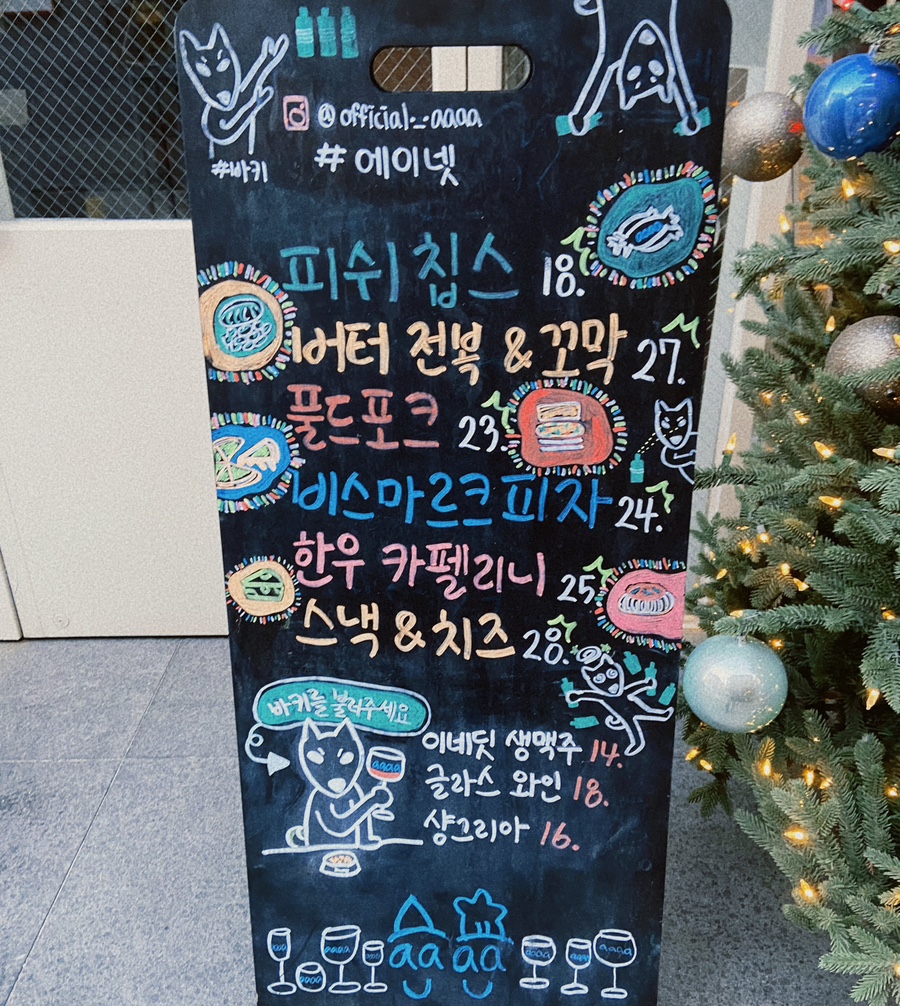 @official._.aaaa
#바키
# 에이넷
피쉬 칩스 18.
버터 전복 & 꼬막 27.
풀드포크 23.
비스마르크 피자 24.
한우 카펠리니 25.
스낵 & 치즈 28.
바키를 불러주세요
이네딧 생맥주 14.
글라스 와인 18.
샹그리아 16.
aaaa
aa aa